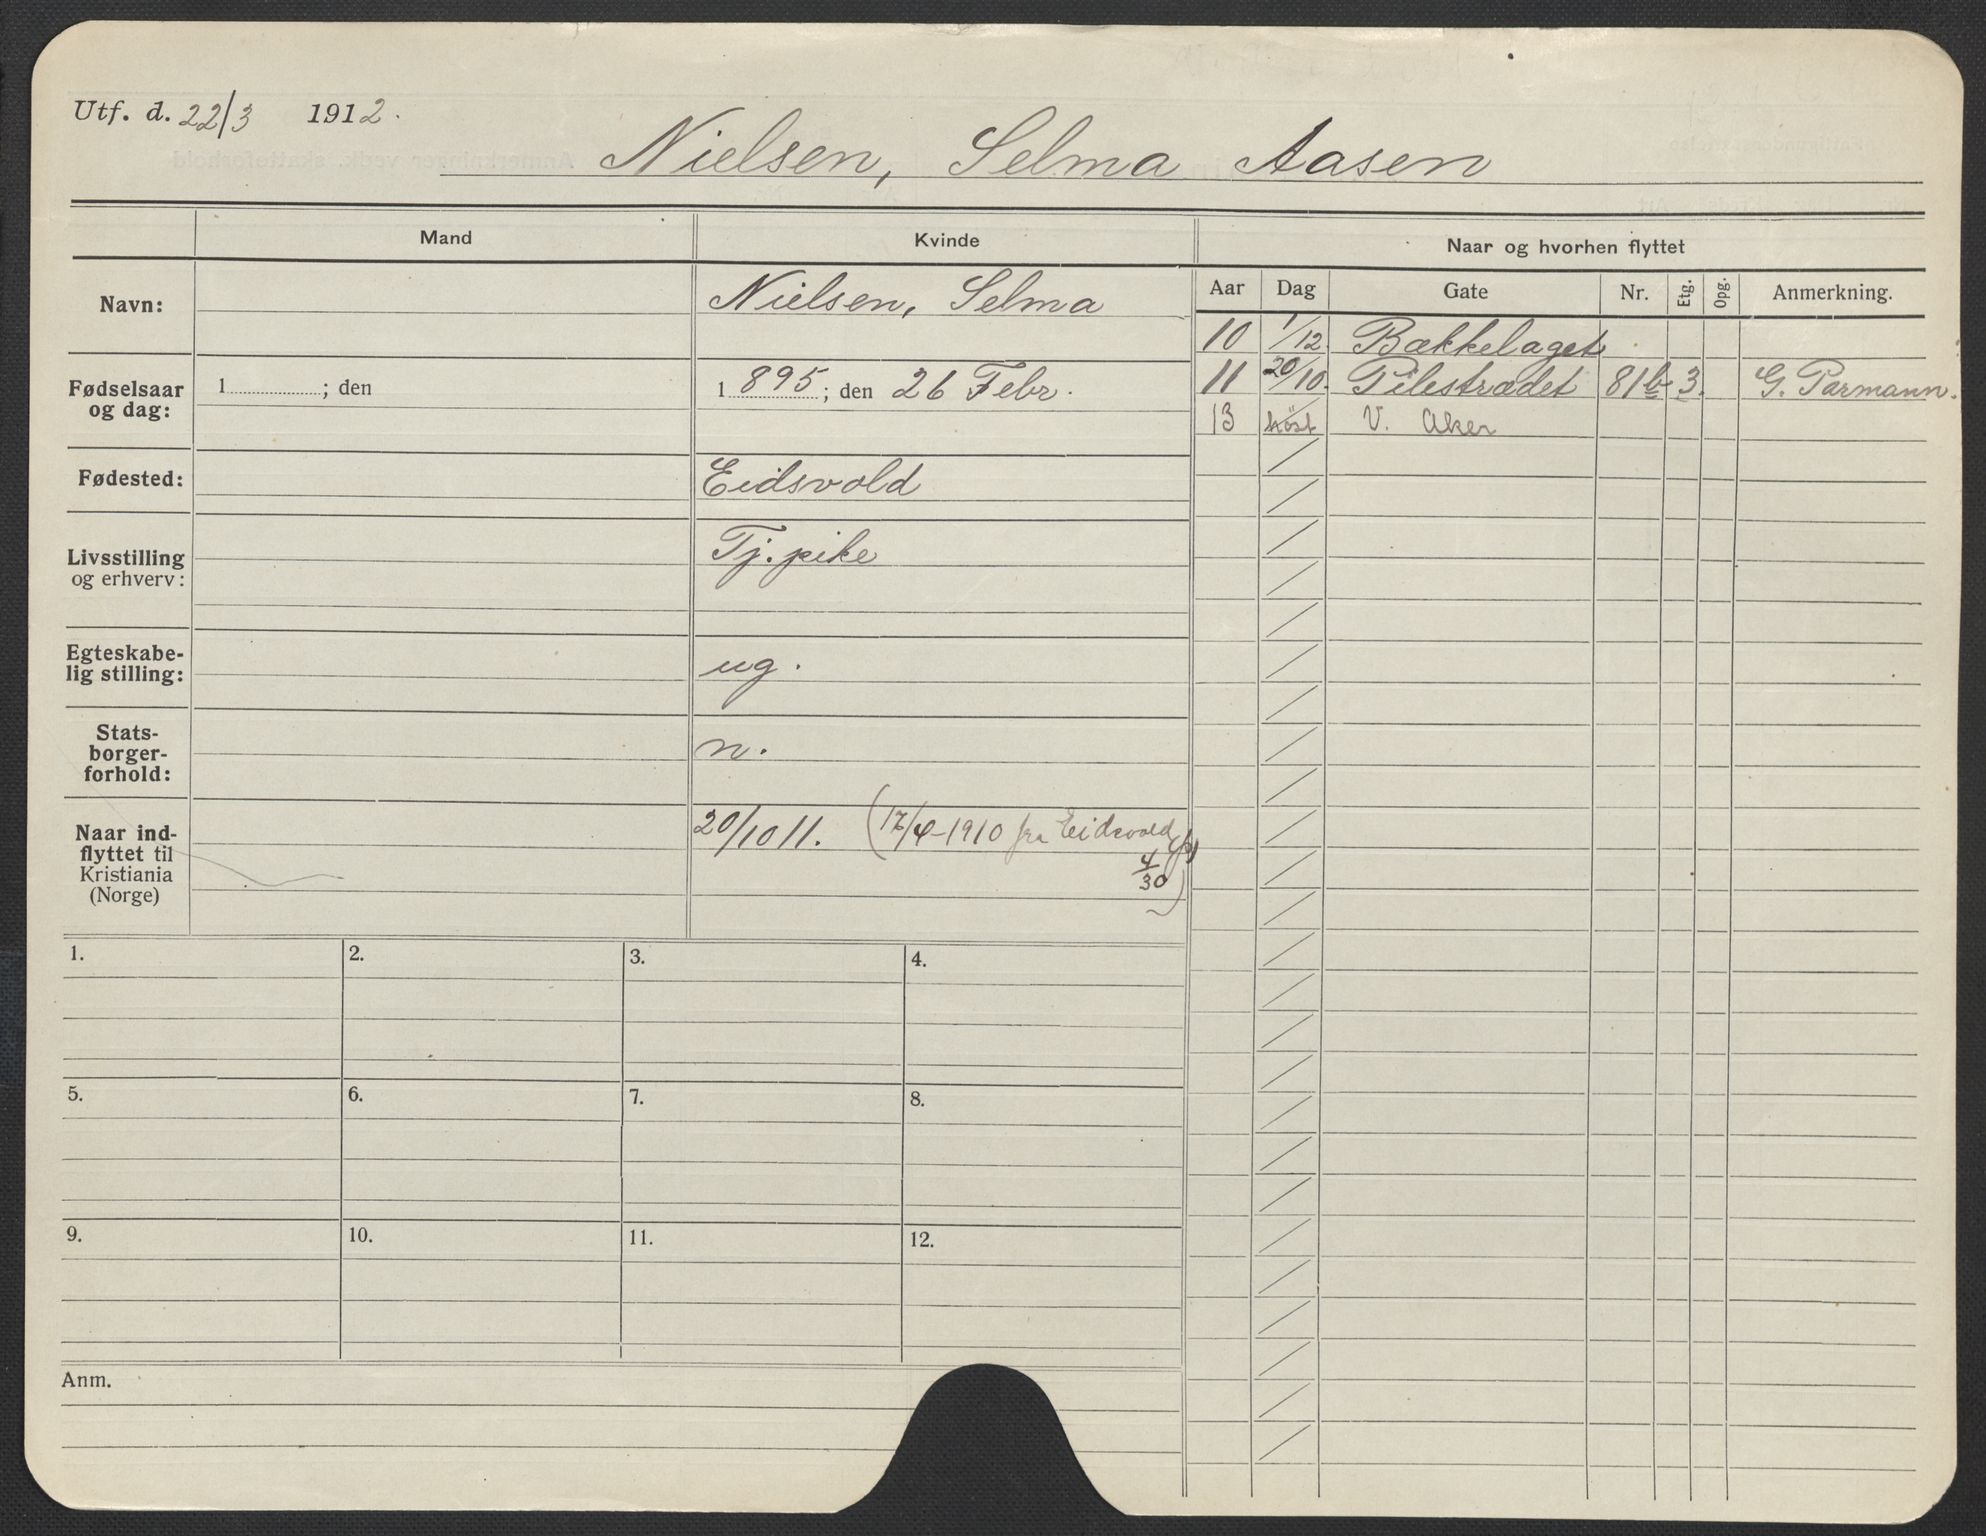 Utf. d. 22/3 1912.
Nielsen, Selma Aasen
Mand
Kvinde
Naar og hvorhen flyttet
Aar Dag Gate Nr. Etg. Opg. Anmerkning.
Navn:
Nielsen, Selma
10 1/12. Bækkelaget
Fødselsaar
og dag:
1 ; den
1 895; den 26 Febr.
11 20/10. Pilestrædet 81b 3. G. Parmann.
13 høst V. Aker
Fødested:
Eidsvold
Livsstilling
og erhverv:
Tj. pike
Egteskabe-
lig stilling:
ug.
Stats-
borger-
forhold:
n.
Naar ind-
flyttet til
Kristiania
(Norge)
20/10 11. (17/4-1910 fra Eidsvold
4/30)
1.
2.
3.
4.
5.
6.
7.
8.
9.
10.
11.
12.
Anm.